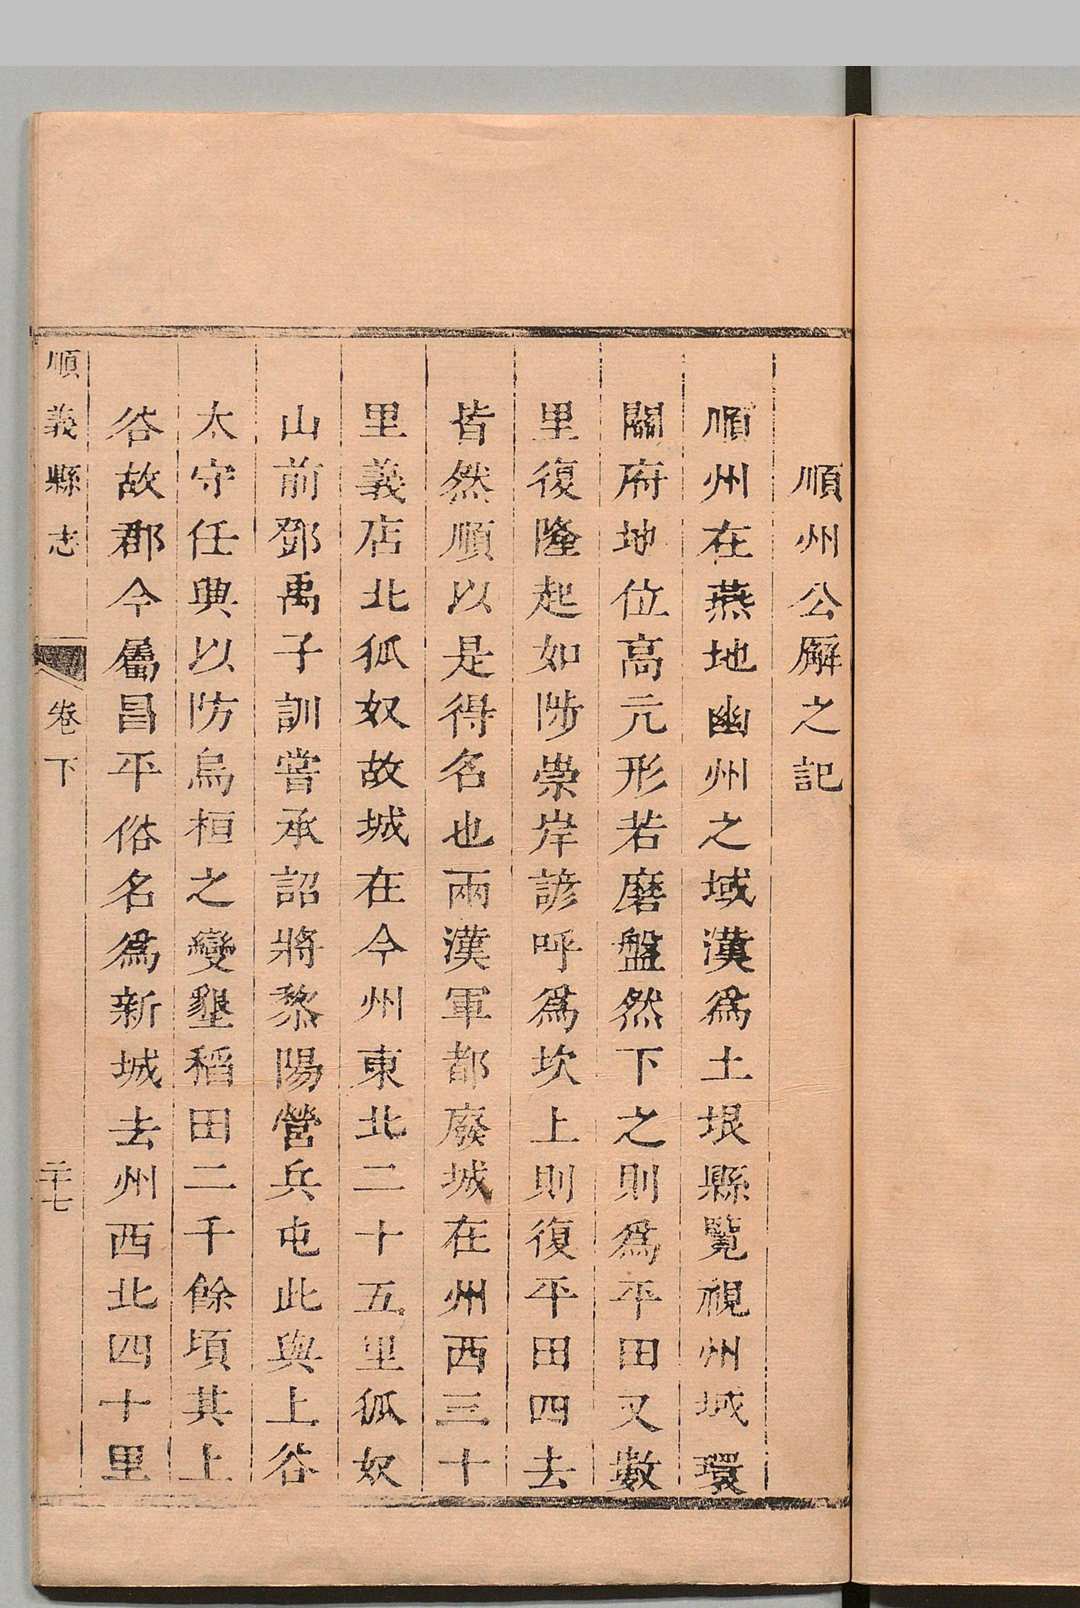 順州公廨之記
順州在燕地幽州之域漢為土垠縣覽視州城環
闤府地位高元形若磨盤然下之則為平田又數
里復隆起如陟崇岸諺呼為坎上則復平田四去
皆然順以是得名也兩漢軍都廢城在州西三十
里義店北狐奴故城在今州東北二十五里狐奴
山前鄧禹子訓嘗承詔將黎陽營兵屯此與上谷
太守任興以防烏桓之變墾稻田二千餘頃其上
谷故郡今屬昌平俗名為新城去州西北四十里
順義縣志 卷下 二十七